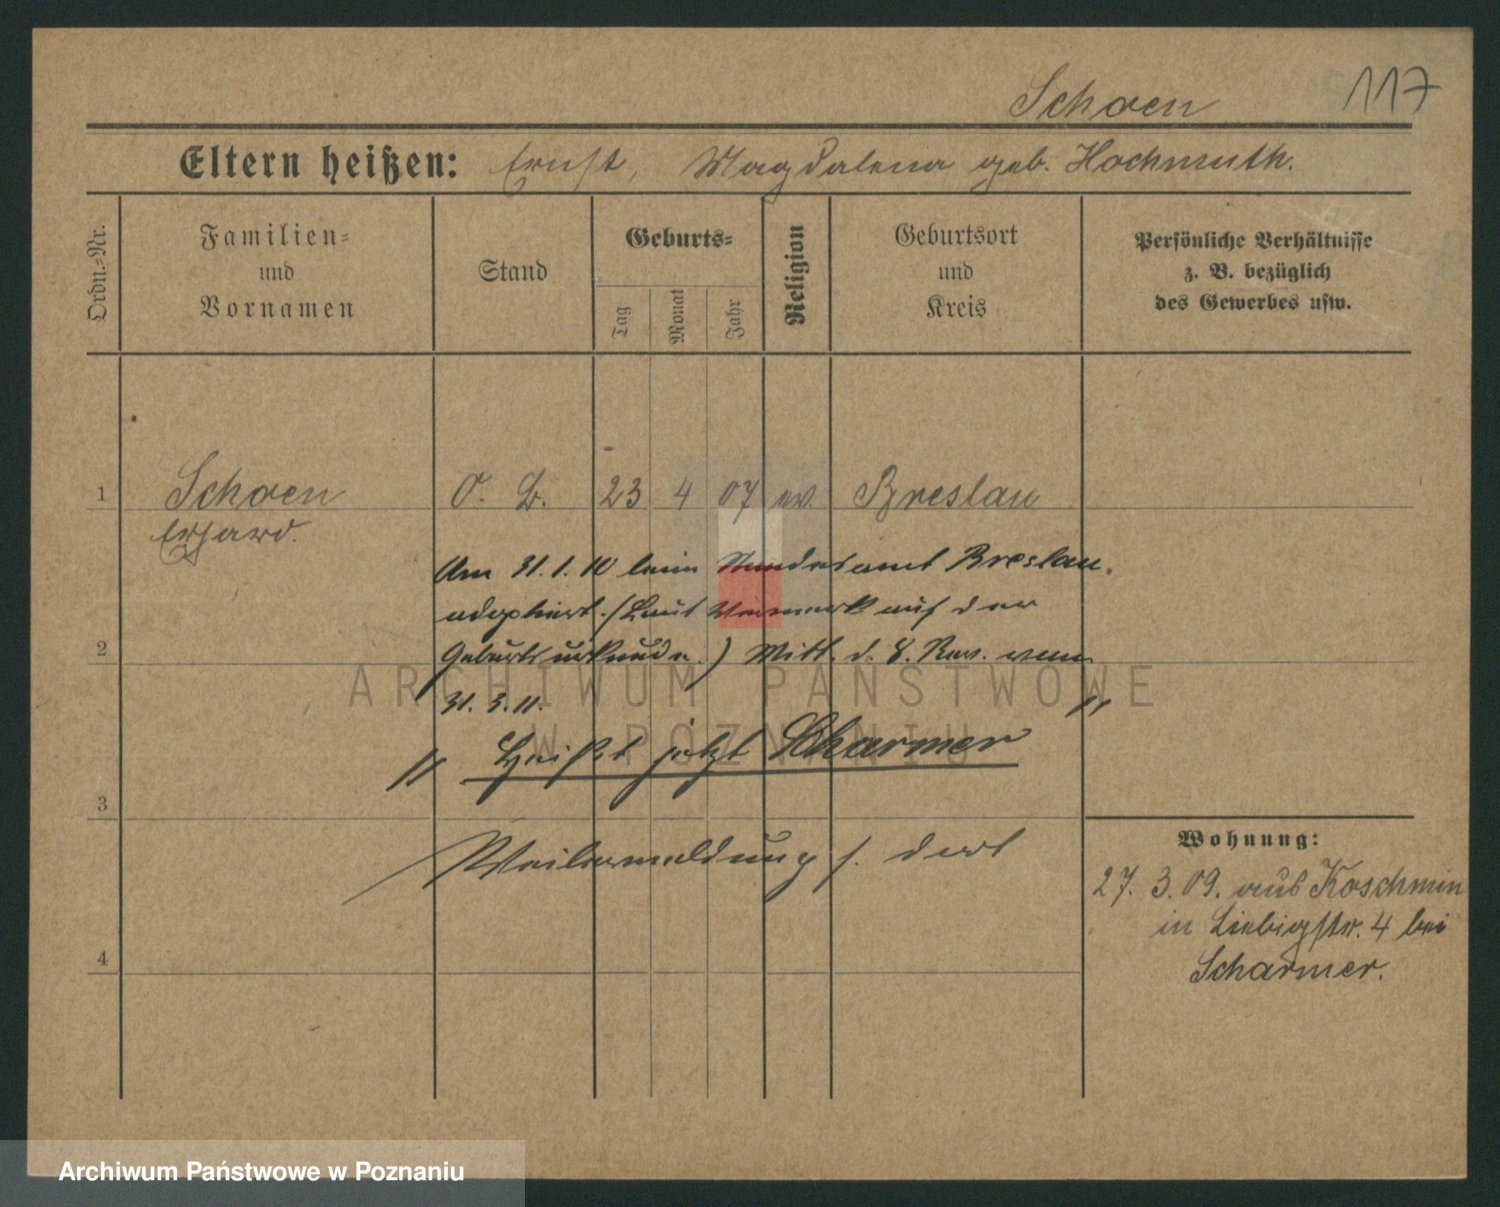 Schoen 117
Eltern heißen: Ernst, Magdalena geb. Hochmuth.
Ordn.-Nr.
Familien- und Vornamen
Stand
Geburts-
Tag
Monat
Jahr
Religion
Geburtsort und Kreis
Persönliche Verhältnisse z. B. bezüglich des Gewerbes usw.
1 Schoen O. B. 23 4 07 ev. Breslau
Erhard.
Am 31. 1. 10 beim Standesamt Breslau.
adoptiert. (Laut Vermerk auf der
2 Geburtsurkunde.) Mitt. d. 8. Rev. vom
31. 3. 11.
" Heißt jetzt Scharmer "
3
Weitermeldung s. dort
Wohnung:
27. 3. 09. aus Koschmin
in Liebigstr. 4 bei
Scharmer.
4
ARCHIWUM PAŃSTWOWE
W POZNANIU
Archiwum Państwowe w Poznaniu